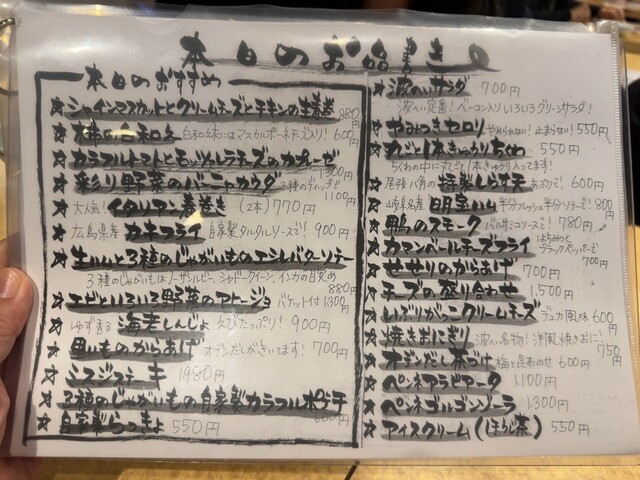 本日のお品書き
本日のおすすめ
☆シャインマスカットとクリームチーズとチキンの生春巻 880円
☆柿の白和え 白和え衣にはマスカルポーネチーズ入り! 600円
☆カラフルトマトとモッツァレラチーズのカプレーゼ 1300円
☆彩り野菜のバーニャカウダ 3種のディップで 1100円
☆大人気! イタリアン春巻き (2本) 770円
☆広島県産 カキフライ 自家製タルタルソースで! 900円
☆生ハムと3種のじゃがいものエシレバターソテー
3種のじゃがいもはノーザンルビー、シャドークイーン、インカの目覚め 880円
☆エビといろいろ野菜のアヒージョ バケット付 1300円
☆ゆず香る 海老しんじょ えびたっぷり! 900円
☆里いものからあげ オジンだしがきいてます! 700円
☆ミスジステーキ 1980円
☆3種のじゃがいもの自家製カラフルポテチ 600円
☆自家製らっきょ 550円
☆波へいサラダ 700円
波へい定番! ベーコン入りいろいろグリーンサラダ!
☆やみつきセロリ やめられない! 止まらない! 550円
☆丸ごと1本きゅうりちくわ 550円
ちくわの中に丸ごと1本きゅうり入ってます!
☆尾張八角の 特製しらす天 あおりで! 600円
☆岐阜名産 明宝ハム 半分フレッシュ半分ソテーで! 800円
☆鴨のスモーク バルサミコソースで! 780円
☆カマンベールチーズフライ はちみつとブラックペッパーで 700円
☆せせりのからあげ 700円
☆チーズの盛り合わせ 1,500円
☆いぶりがっこクリームチーズ デュカ風味 600円
☆焼きおにぎり 波へい名物! 洋風焼きおにぎり 750円
☆オジンだし茶づけ 梅と昆布のせ 600円
☆ペンネアラビアータ 1100円
☆ペンネゴルゴンゾーラ 1300円
☆アイスクリーム(ほうじ茶) 550円